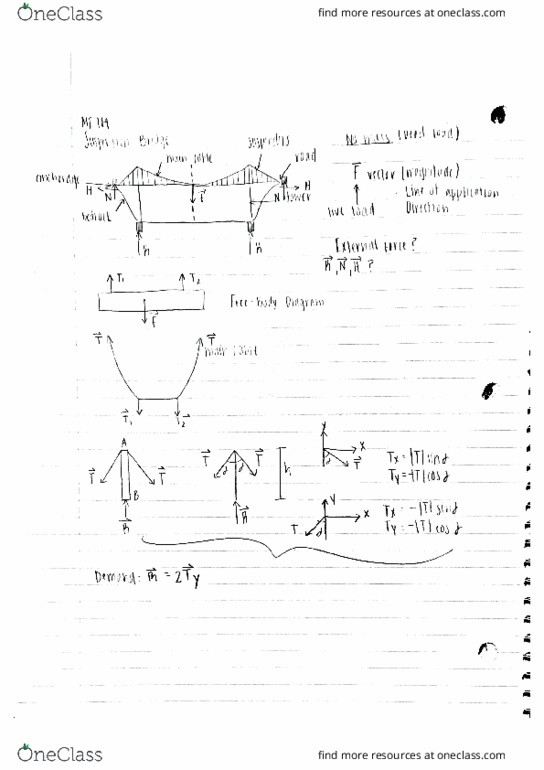 OneClass
find more resources at oneclass.com
Suspension Bridge
main cable
suspenders
road
anchorage
tower
No mass (dead load)
F vector (magnitude)
Line of application
Direction
live load
H
N
F
N
H
External force?
R, N, H ?
T1
T2
F
Free-body Diagram
T
T
main cable
T1
T2
A
T
T
B
R
T
T
R
h
y
x
T
Tx = |T| sin
y
x
T
Tx = -|T| sin
Ty = -|T| cos
Demand: R = 2Ty
OneClass
find more resources at oneclass.com